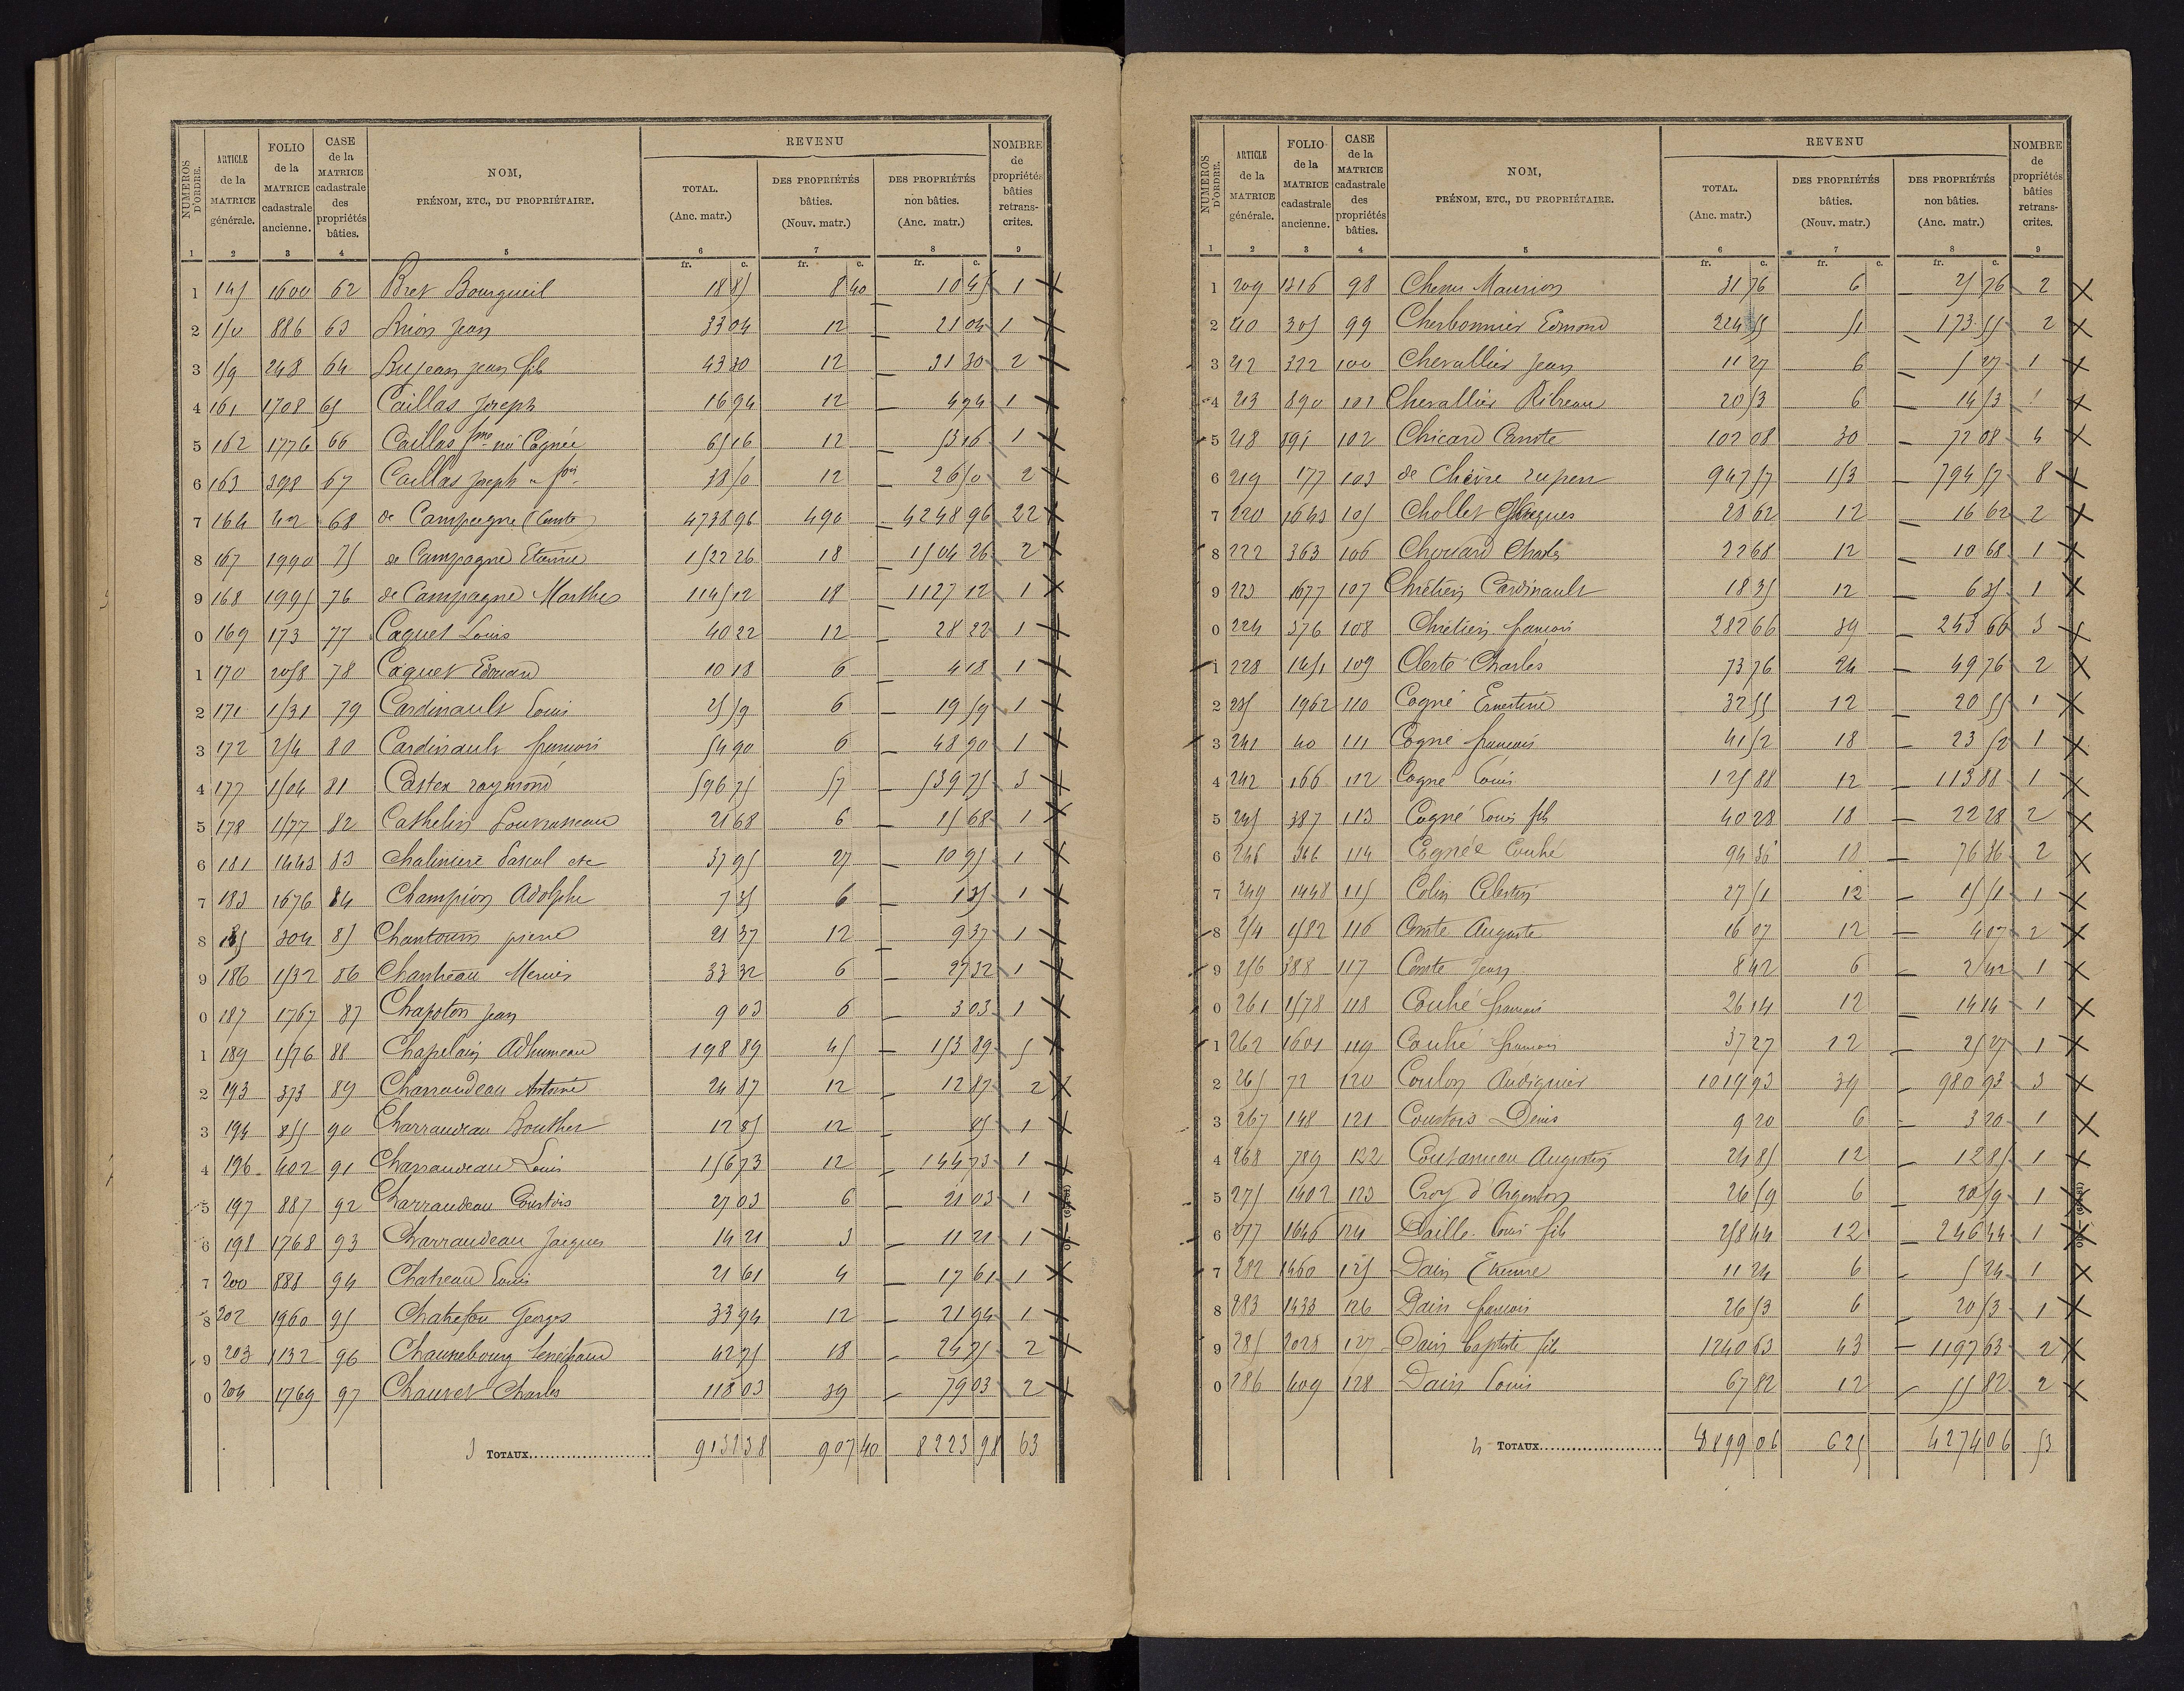 NUMÉROS D'ORDRE. | ARTICLE de la MATRICE générale. | FOLIO de la MATRICE cadastrale ancienne. | CASE de la MATRICE cadastrale des propriétés bâties. | NOM, PRÉNOM, ETC., DU PROPRIÉTAIRE. | REVENU TOTAL. (Anc. matr.) | REVENU DES PROPRIÉTÉS bâties. (Nouv. matr.) | REVENU DES PROPRIÉTÉS non bâties. (Anc. matr.) | NOMBRE de propriétés bâties retranscrites.
1 2 3 4 5 6 7 8 9
fr. c. fr. c. fr. c.
1 145 1600 62 Bret Bourgueil 18 85 8 40 10 45 1 X
2 150 886 63 Brion Jean 33 04 12 — 21 04 1 X
3 159 248 64 Bujeau jean fils 43 30 12 — 31 30 2 X
4 161 1708 65 Caillas Joseph 16 94 12 — 4 94 1 X
5 162 1776 66 Caillas fme née Cognée 65 16 12 — 53 16 1 X
6 163 398 67 Caillas Joseph 38 50 12 — 26 50 2 X
7 164 42 68 de Campagne (Comte) 4738 96 490 — 4248 96 22 X
8 167 1990 75 de Campagne Etienne 1522 26 18 — 1504 26 2 X
9 168 1995 76 de Campagne Marthe 1145 12 18 — 1127 12 1 X
0 169 173 77 Caquet Louis 40 22 12 — 28 22 1 X
1 170 2058 78 Caquet Edouard 10 18 6 — 4 18 1 X
2 171 1531 79 Cardinault Louis 25 59 6 — 19 59 1 X
3 172 254 80 Cardinault françois 54 90 6 — 48 90 1 X
4 177 1504 81 Castex raymond 596 75 57 — 539 75 3 X
5 178 1577 82 Cathelin 21 68 6 — 15 68 1 X
6 181 1443 83 Chaliniere Pascal etc 37 95 27 — 10 95 1 X
7 183 1676 84 Champion Adolphe 7 35 6 — 1 35 1 X
8 185 304 85 Chantourin pierre 21 37 12 — 9 37 1 X
9 186 1532 86 Chantreau Mercier 33 32 6 — 27 32 1 X
0 187 1767 87 Chapoton jean 9 03 6 — 3 03 1 X
1 189 1576 88 Chapelain Adhumeau 198 89 45 — 153 89 5 X
2 193 373 89 Charraudeau Antoine 24 87 12 — 12 87 2 X
3 194 855 90 Charraudeau Bouther 12 85 12 — 85 1 X
4 196 402 91 Charraudeau Louis 156 73 12 — 144 73 1 X
5 197 887 92 Charraudeau Courtois 27 03 6 — 21 03 1 X
6 198 1768 93 Charraudeau Jacques 14 21 3 — 11 21 1 X
7 200 888 94 Chateau Louis 21 61 4 — 17 61 1 X
8 202 1960 95 Chatrefou Georges 33 94 12 — 21 94 1 X
9 203 1132 96 Chaunebourg Senechaud 42 75 18 — 24 75 2 X
0 204 1769 97 Chauvet Charles 118 03 39 — 79 03 2 X
3 TOTAUX 9131 38 907 40 8223 98 63
NUMÉROS D'ORDRE. | ARTICLE de la MATRICE générale. | FOLIO de la MATRICE cadastrale ancienne. | CASE de la MATRICE cadastrale des propriétés bâties. | NOM, PRÉNOM, ETC., DU PROPRIÉTAIRE. | REVENU TOTAL. (Anc. matr.) | REVENU DES PROPRIÉTÉS bâties. (Nouv. matr.) | REVENU DES PROPRIÉTÉS non bâties. (Anc. matr.) | NOMBRE de propriétés bâties retranscrites.
1 2 3 4 5 6 7 8 9
fr. c. fr. c. fr. c.
1 209 1316 98 Chenu Maurion 31 76 6 — 25 76 2 X
2 210 305 99 Cherbonnier Edmond 224 55 51 — 173 55 2 X
3 212 322 100 Chevallier Jean 11 27 6 — 5 27 1 X
4 213 890 101 Chevallier Ribreau 20 53 6 — 14 53 1 X
5 218 191 102 Chicard Comte 102 08 30 — 72 08 4 X
6 219 177 103 de Chièvre 947 57 153 — 794 57 8 X
7 220 1643 105 Chollet Jacques 28 62 12 — 16 62 2 X
8 222 363 106 Chouard Charles 22 68 12 — 10 68 1 X
9 223 1677 107 Chrétien Cardinault 18 35 12 — 6 35 1 X
0 224 376 108 Chrétien françois 282 66 39 — 243 66 3 X
1 228 1451 109 Clerté Charles 73 76 24 — 49 76 2 X
2 235 1962 110 Cogné Ernestine 32 55 12 — 20 55 1 X
3 241 40 111 Cogné françois 41 52 18 — 23 52 1 X
4 242 166 112 Cogné Louis 125 88 12 — 113 88 1 X
5 245 387 113 Cogné Louis fils 40 28 18 — 22 28 2 X
6 246 346 114 Cognée Couhé 94 36 18 — 76 36 2 X
7 249 1448 115 Colin Célestin 27 51 12 — 15 51 1 X
8 254 1582 116 Comte Auguste 16 07 12 — 4 07 2 X
9 256 388 117 Comte Jean 8 42 6 — 2 42 1 X
0 261 1578 118 Couhé françois 26 14 12 — 14 14 1 X
1 262 1601 119 Couhé françois 37 27 12 — 25 27 1 X
2 265 72 120 Coulon Audiguier 1019 93 39 — 980 93 3 X
3 267 148 121 Courtois Denis 9 20 6 — 3 20 1 X
4 268 789 122 Coutanceau Augustin 24 85 12 — 12 85 1 X
5 275 1402 123 Croy d'Argenton 26 59 6 — 20 59 1 X
6 277 1646 124 Daillé Louis fils 258 44 12 — 246 44 1 X
7 282 1460 125 Dain Etienne 11 24 6 — 5 24 1 X
8 283 1433 126 Dain françois 26 53 6 — 20 53 1 X
9 285 2025 127 Dain Baptiste fils 1240 63 43 — 1197 63 2 X
0 286 409 128 Dain Louis 67 82 12 — 55 82 2 X
4 TOTAUX 4899 06 625 4274 06 53